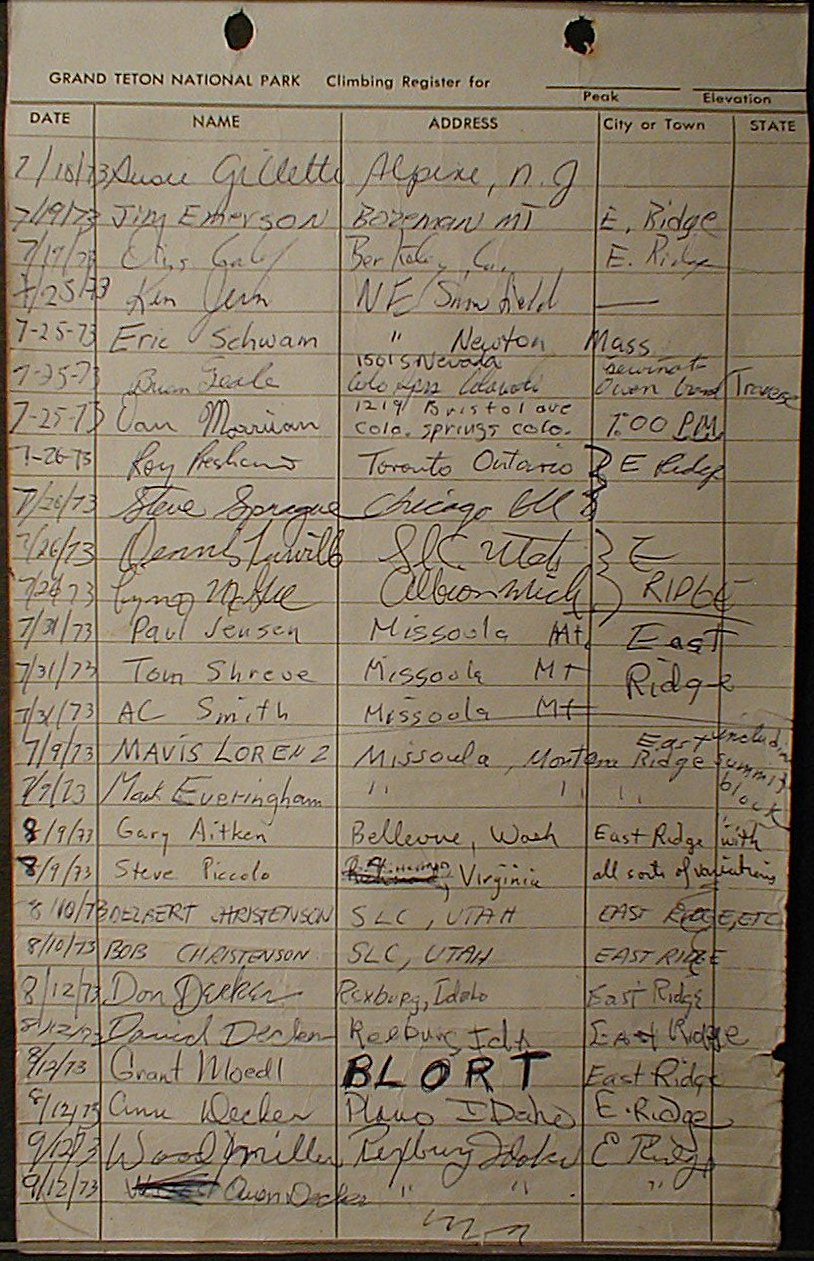 GRAND TETON NATIONAL PARK Climbing Register for
Peak Elevation
DATE NAME ADDRESS City or Town STATE
7/18/73 Susie Gillette Alpine, N.J
7/19/73 Jim Emerson Bozeman MT E. Ridge
7/19/73 Berkeley, Ca. E. Ridge
7/25/73 Ken NE Snowfield —
7-25-73 Eric Schwam " Newton Mass
7-25-73 Brian 1501 S Nevada Colo Spgs Colorado Owen Traverse
7-25-73 Van 1219 Bristol ave Colo. springs colo. 1:00 PM
7-26-73 Roy Toronto Ontario } E Ridge
7/26/73 Steve Sprague Chicago Ill
7/26/73 Dennis SLC Utah } E
7/26/73 Albion Mich } RIDGE
7/31/73 Paul Jensen Missoula Mt. East
7/31/73 Tom Shreve Missoula Mt Ridge
7/31/73 AC Smith Missoula Mt
7/9/73 MAVIS LORENZ Missoula, Montana East Ridge including summit block
7/9/73 Mark Everingham " " "
8/9/73 Gary Aitken Bellevue, Wash East Ridge with
8/9/73 Steve Piccolo Virginia all sorts of variations
8/10/73 DELBERT CHRISTENSON SLC, UTAH EAST RIDGE, ETC
8/10/73 BOB CHRISTENSON SLC, UTAH EAST RIDGE
8/12/73 Don Decker Rexburg, Idaho East Ridge
8/12/73 David Decker Rexburg Ida East Ridge
8/12/73 Grant Moedl BLORT East Ridge
8/12/73 Ann Decker Plano IDaho E. Ridge
9/12/73 Wood Miller Rexburg Idaho E Ridge
9/12/73 Owen Decker " " "